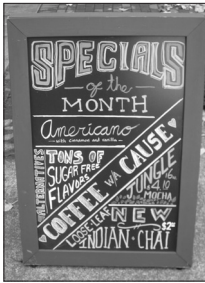 SPECIALS
of the
MONTH
Americano
with cinnamon and vanilla
ALTERNATIVES
TONS OF
SUGAR FREE
FLAVORS
COFFEE W/A CAUSE
JUNGLE
MOCHA
LOOSE LEAF
NEW
INDIAN CHAI